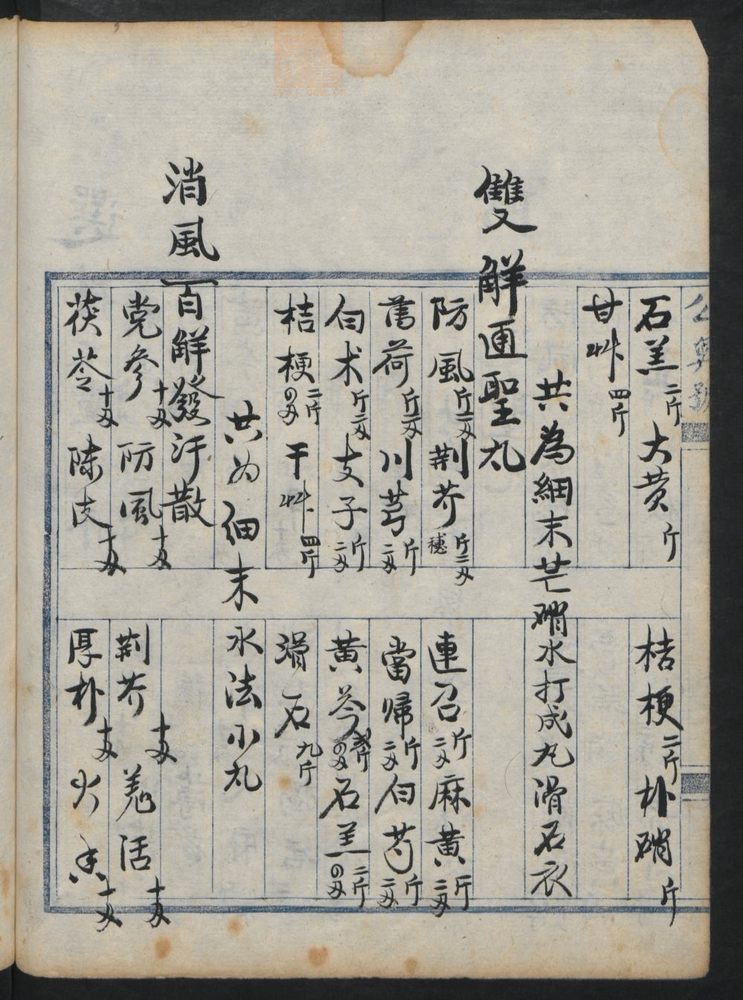 石羔二斤 大黄斤 桔梗二斤 朴硝斤
甘艸四斤
共為細末芒硝水打成丸滑石衣
雙解通聖丸
防風斤二两 荆芥穗斤二两 連召斤二两 麻黄斤二两
薄荷斤二两 川芎斤二两 當歸斤二两 白芍斤二两
白术斤二两 支子斤二两 黄芩 石羔二斤四两
桔梗二斤四两 干艸四斤 滑石九斤
共为细末 水法小丸
消風百解發汗散
党參十两 防風十两 荆芥十两 羌活十两
茯苓十两 陳皮十两 厚朴十两 火香十两